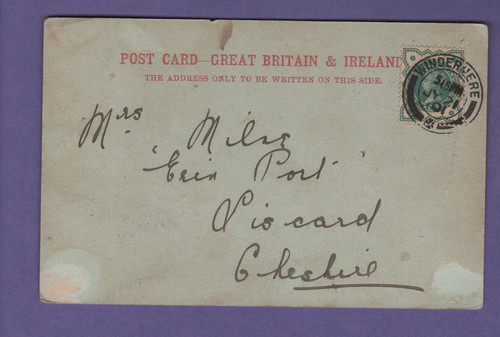 POST CARD—GREAT BRITAIN & IRELAND
THE ADDRESS ONLY TO BE WRITTEN ON THIS SIDE.
WINDERMERE
Mrs Milne
"Erin Port"
Liscard
Cheshire